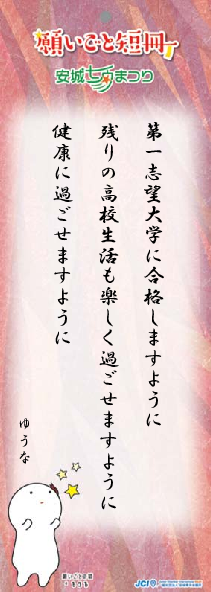 願いごと短冊
安城七夕まつり
第一志望大学に合格しますように
残りの高校生活も楽しく過ごせますように
健康に過ごせますように
ゆうな
願いごと短冊
JCI